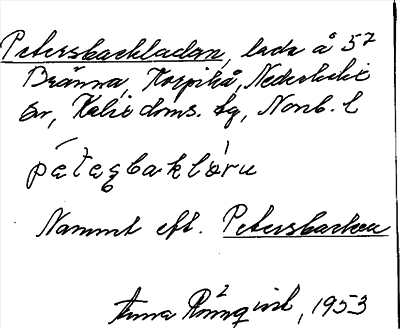 Petersbackladan, lada å 5²
Brännа, Korpikå, Nederkalix
sn, Kalix doms. lg, Norrb. l
pétesbaklɑ̀ru
Namnet eft. Petersbacken
Anna Rönnqvist, 1953